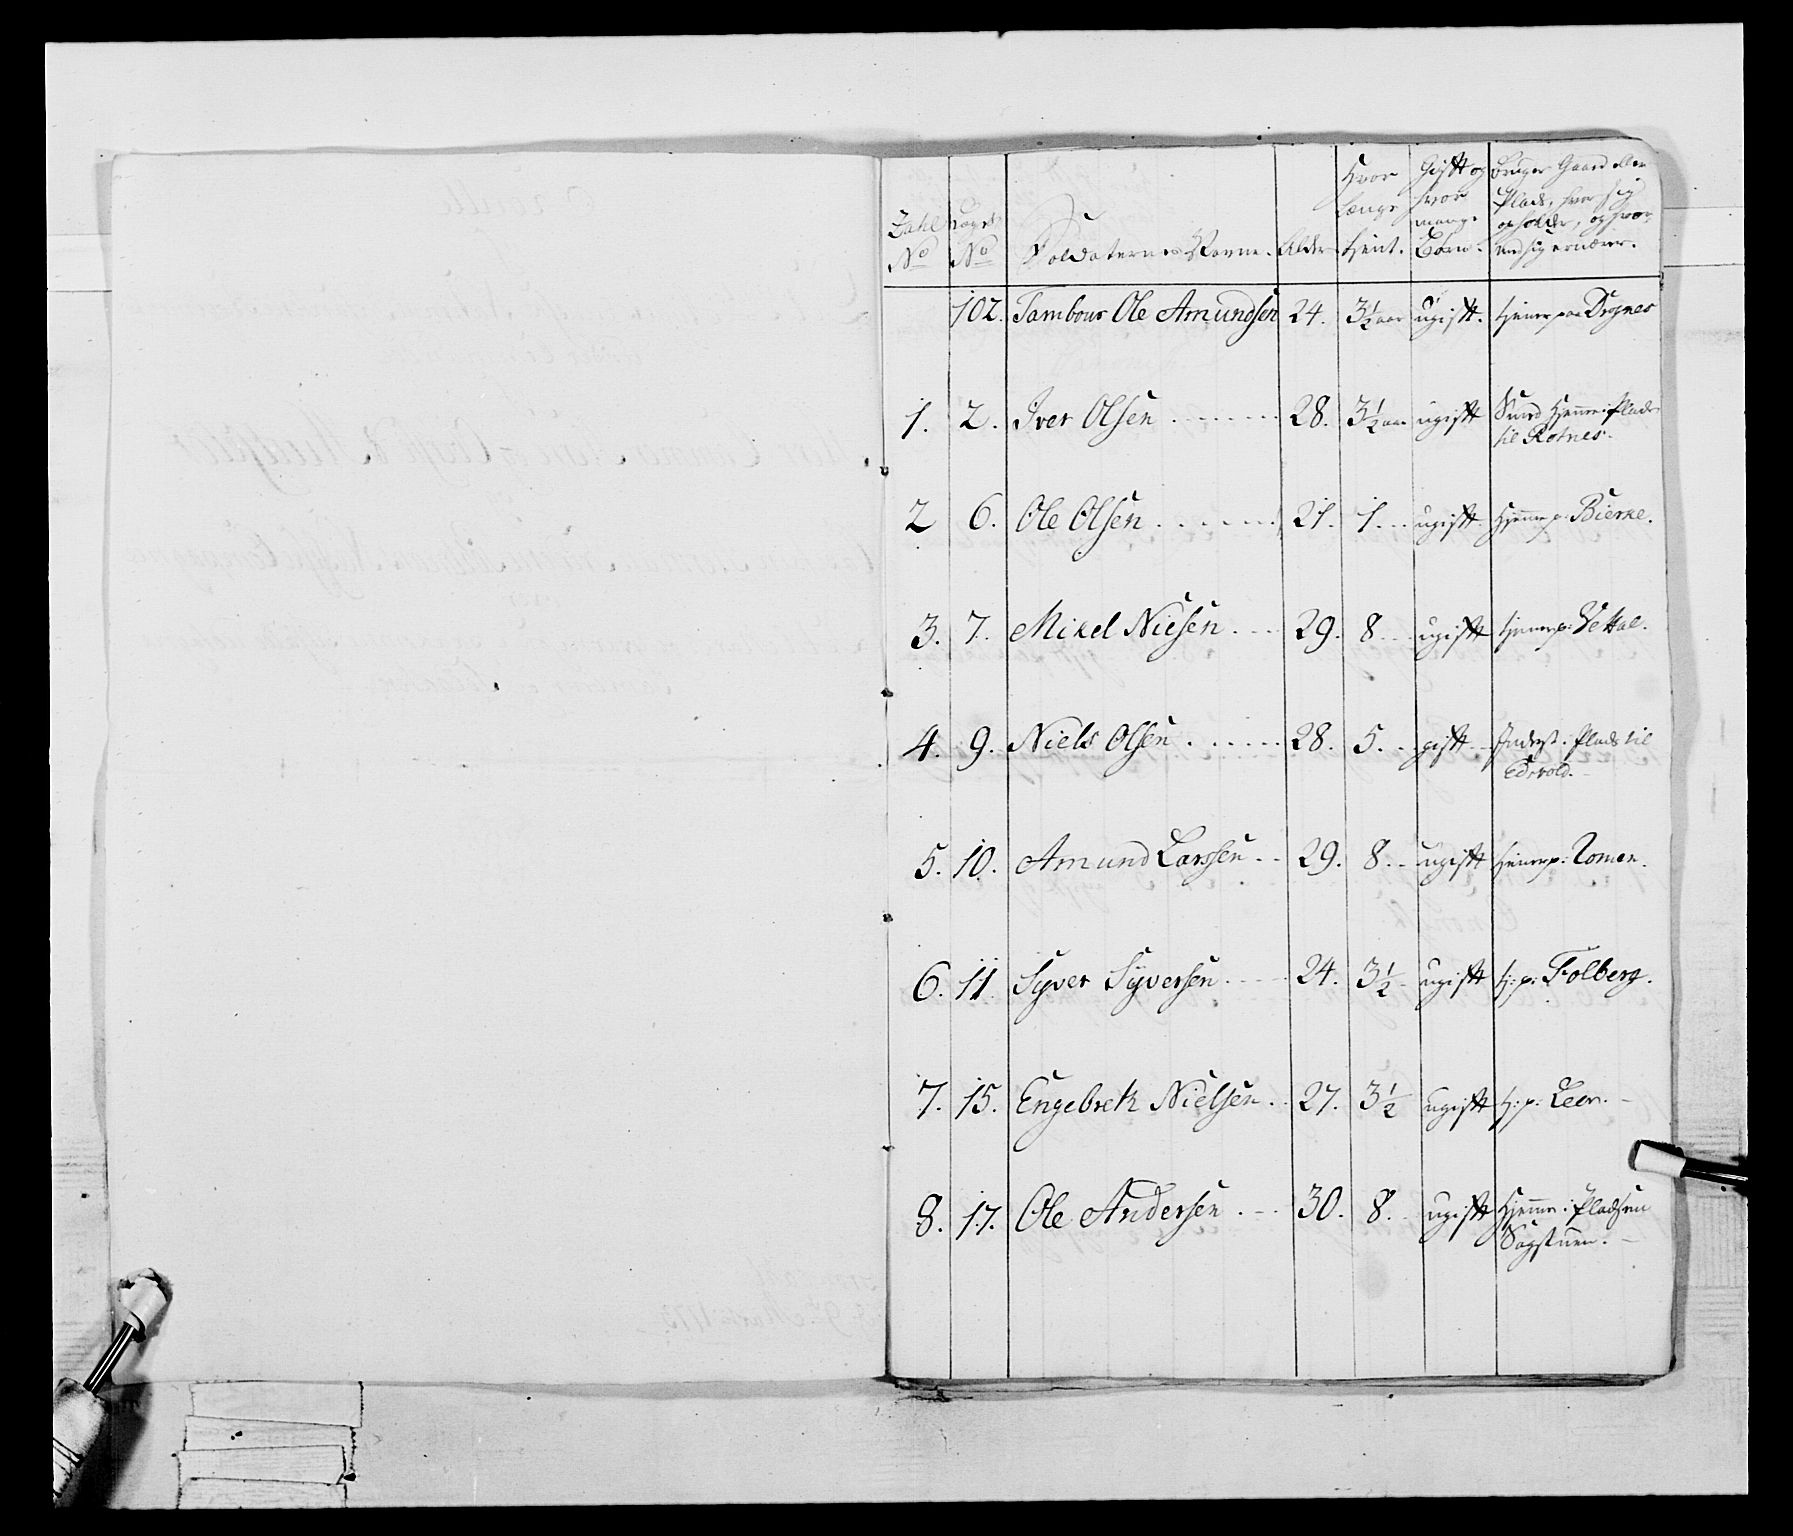 Zahl No
Lægds No
Soldaternes Navne.
Alder
Hvor længe tient.
Gift og hvor mange Børn.
Bruger Gaard eller Plads, hver sig opholder, og hvor ved sig ernærer.
102. Tambour Ole Amundsen 24. 3½ aar ugift. tiener paa Dognes
1. 2. Iver Olsen 28. 3½ aar ugift Hiemme i Plads
til Rotnes.
2 6. Ole Olsen 21. 1. ugift. tiener p: Bierke.
3. 7. Mikel Nielsen 29. 8. ugift tiener p: Vettal.
4. 9. Niels Olsen 28. 5. gift Inderst i Plads til
Edsvold.
5. 10. Amund Larssen 29. 8. ugift tiener p: Tomen.
6. 11 Syver Syversen 24. 3½ ugift t: p: Folberg.
7. 15. Engebrek Nielsen 27. 3½ ugift t: p: Leer.
8. 17. Ole Andersen 30. 8. ugift Hiemme i Pladsen
Sagstuen.